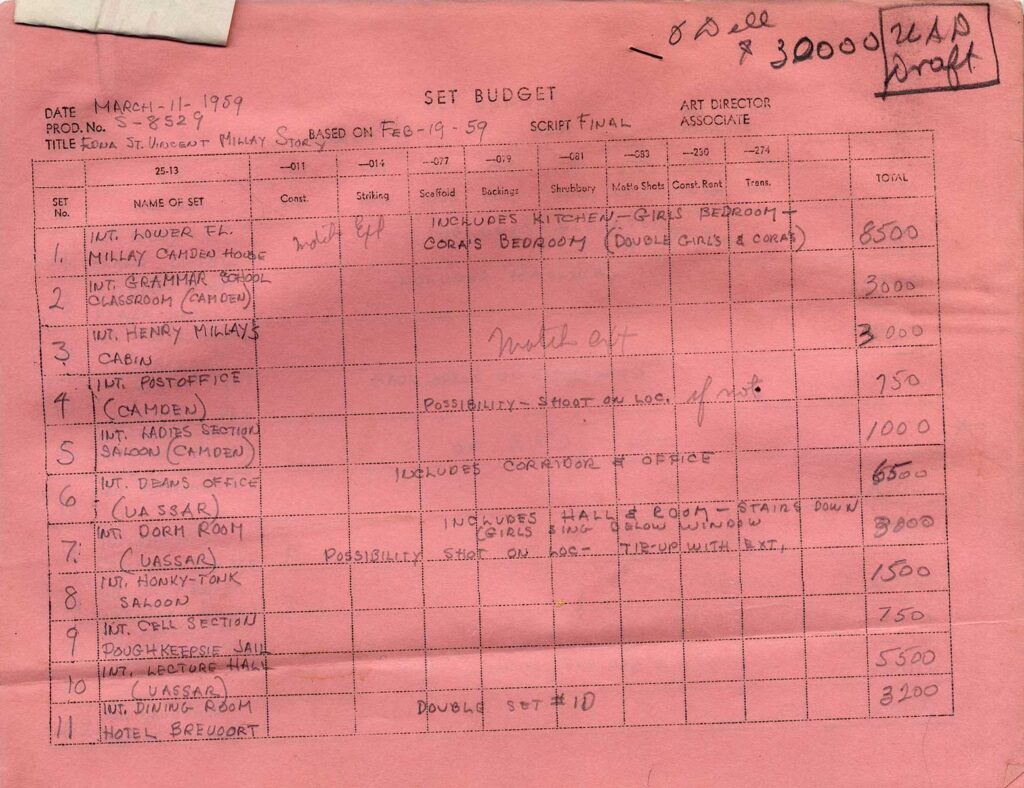 O'Dell
$ 30000
UAD
Draft
SET BUDGET
DATE MARCH-11-1959
PROD. No. S-8529
TITLE EDNA ST. VINCENT MILLAY STORY
BASED ON FEB-19-59
SCRIPT FINAL
ART DIRECTOR
ASSOCIATE
25-13 —011 —014 —077 —079 —081 —083 —230 —274
SET No. NAME OF SET Const. Striking Scaffold Backings Shrubbery Matte Shots Const. Rent Trans. TOTAL
1. INT. LOWER FL. Match Ext INCLUDES KITCHEN – GIRLS BEDROOM –
MILLAY CAMDEN HOUSE CORA'S BEDROOM (DOUBLE GIRL'S & CORA'S) 8500
2 INT. GRAMMAR SCHOOL
CLASSROOM (CAMDEN) 3000
3 INT. HENRY MILLAYS Match ext 3000
CABIN
4 INT. POSTOFFICE 750
(CAMDEN) POSSIBILITY – SHOOT ON LOC. if not
5 INT. LADIES SECTION 1000
SALOON (CAMDEN)
6 INT. DEANS OFFICE INCLUDES CORRIDOR & OFFICE 6500
(VASSAR)
7. INT. DORM ROOM INCLUDES HALL & ROOM – STAIRS DOWN
(GIRLS SING BELOW WINDOW
(VASSAR) POSSIBILITY SHOT ON LOC – TIE-UP WITH EXT,
8 INT. HONKY-TONK 1500
SALOON
9 INT. CELL SECTION 750
POUGHKEEPSIE JAIL
10 INT. LECTURE HALL 5500
(VASSAR)
11 INT. DINING ROOM DOUBLE SET #10 3200
HOTEL BREVOORT